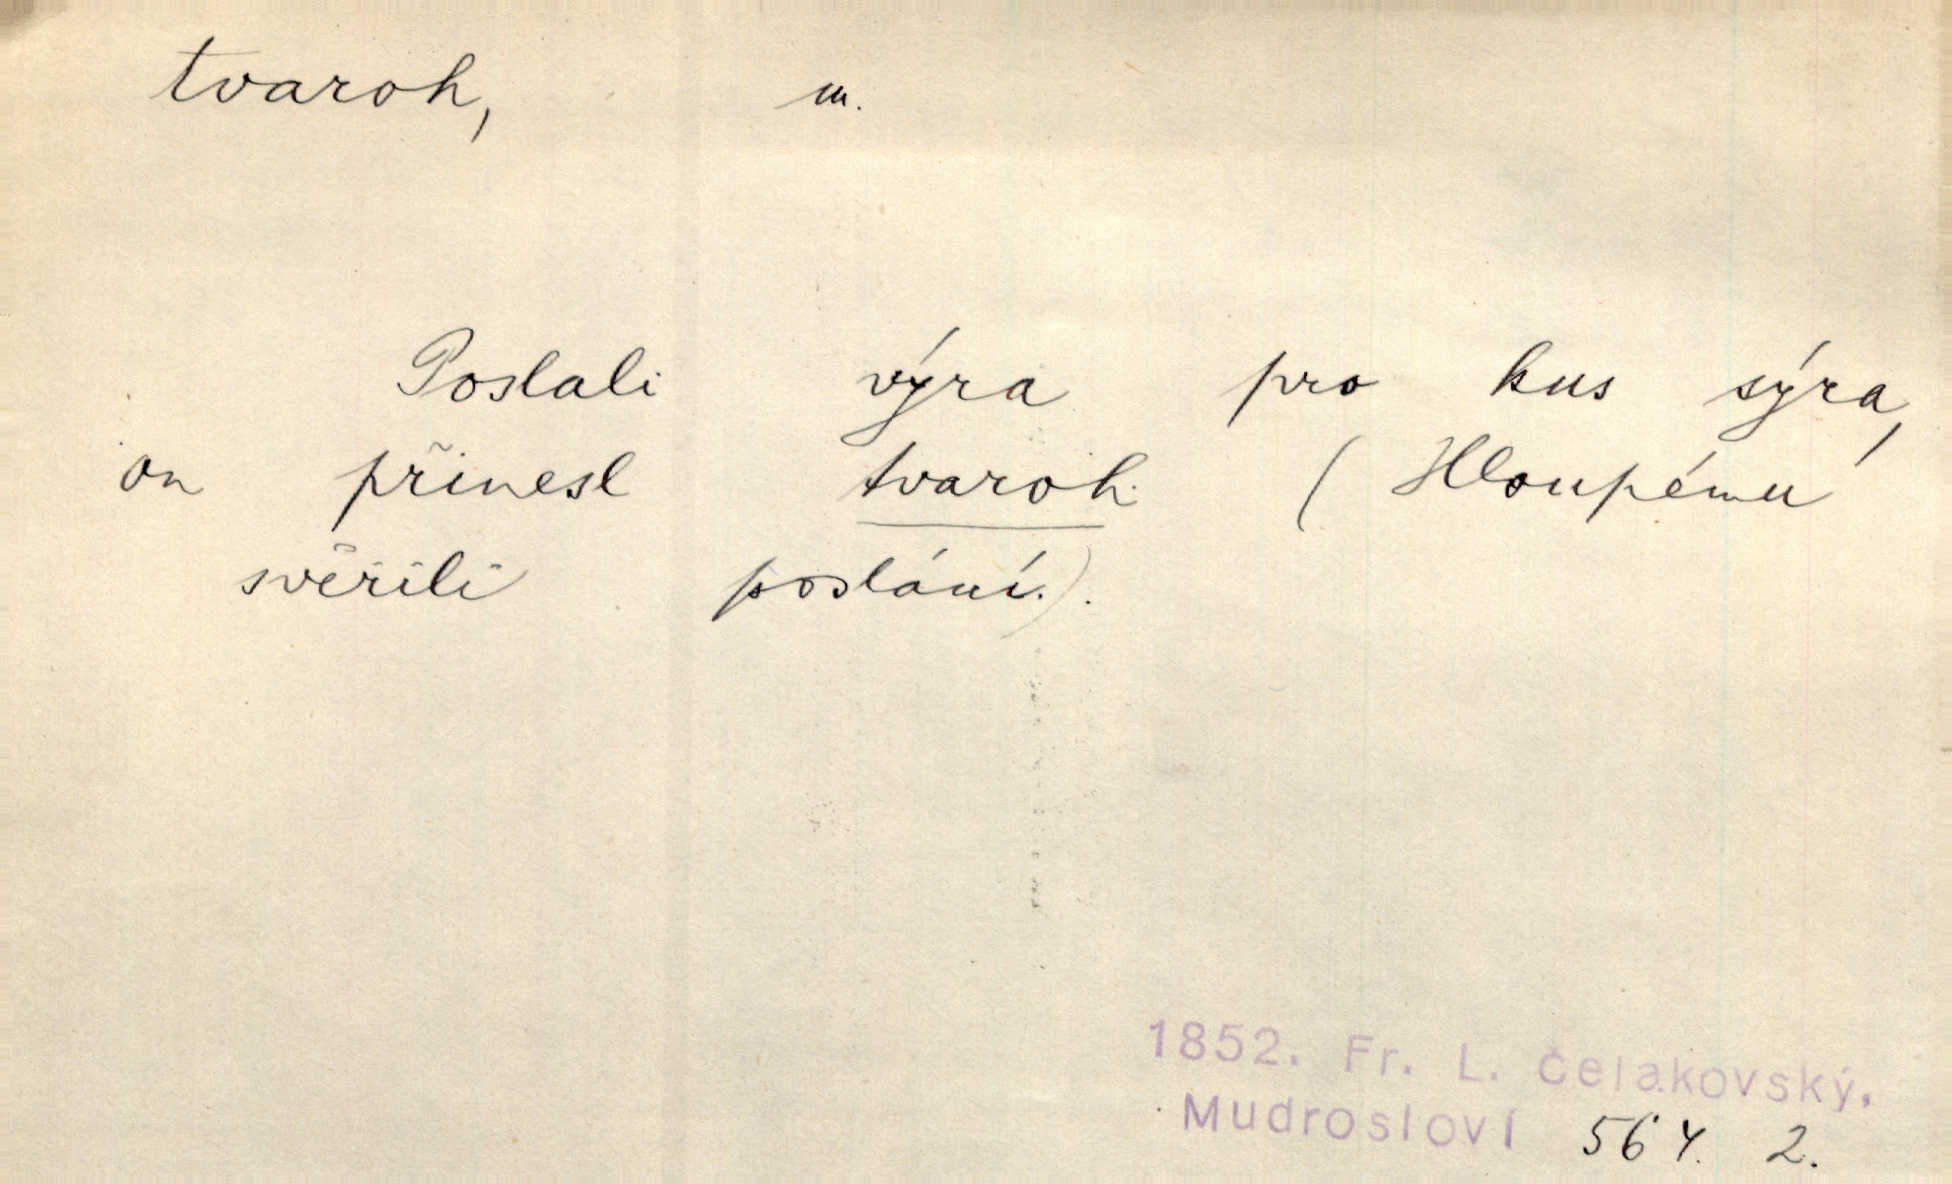 tvaroh, m.
Poslali výra pro kus sýra,
on přinesl tvaroh. (Hloupému
svěřili poslání.).
1852. Fr. L. Čelakovský.
Mudrosloví 564. 2.